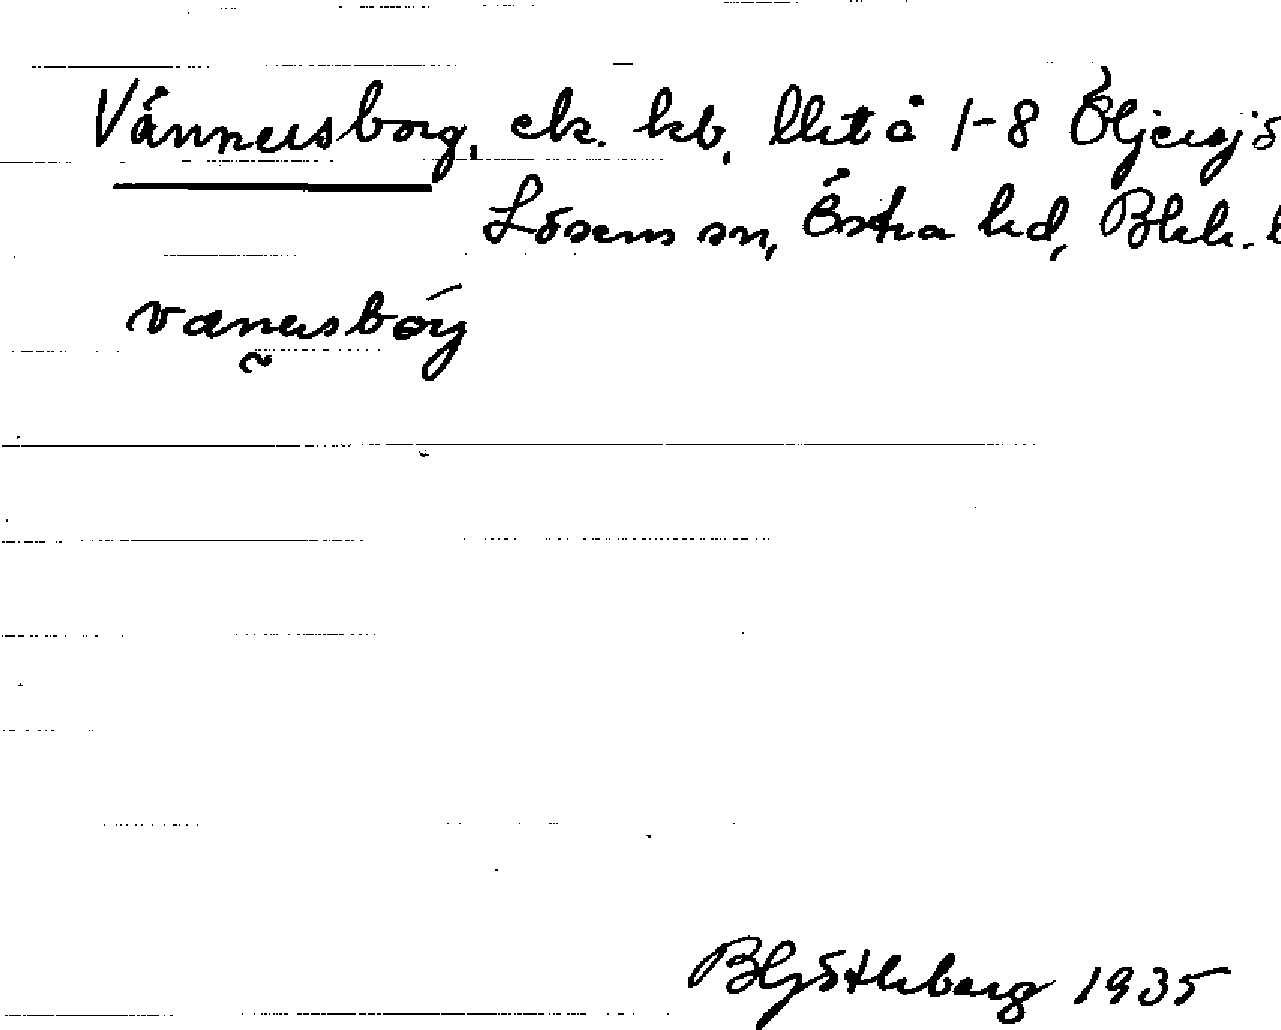 Vännersborg, ek. kb, llit å 1-8 Öljersjö
Lösens sn, Östra hd, Blek. l
vanersborg
BHjörtleberg 1935